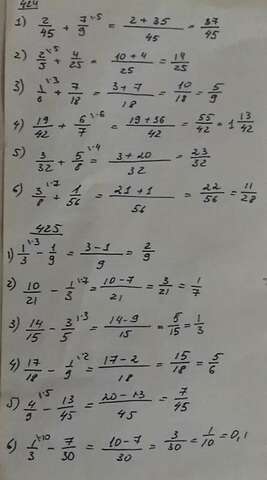 424
1) 2/45 + 7/9^{\5} = (2+35)/45 = 37/45
2) 2/5^{\5} + 4/25 = (10+4)/25 = 14/25
3) 1/6^{\3} + 7/18 = (3+7)/18 = 10/18 = 5/9
4) 19/42 + 6/7^{\6} = (19+36)/42 = 55/42 = 1 13/42
5) 3/32 + 5/8^{\4} = (3+20)/32 = 23/32
6) 3/8^{\7} + 1/56 = (21+1)/56 = 22/56 = 11/28
425
1) 1/3^{\3} - 1/9 = (3-1)/9 = 2/9
2) 10/21 - 1/3^{\7} = (10-7)/21 = 3/21 = 1/7
3) 14/15 - 3/5^{\3} = (14-9)/15 = 5/15 = 1/3
4) 17/18 - 1/9^{\2} = (17-2)/18 = 15/18 = 5/6
5) 4/9^{\5} - 13/45 = (20-13)/45 = 7/45
6) 1/3^{\10} - 7/30 = (10-7)/30 = 3/30 = 1/10 = 0,1